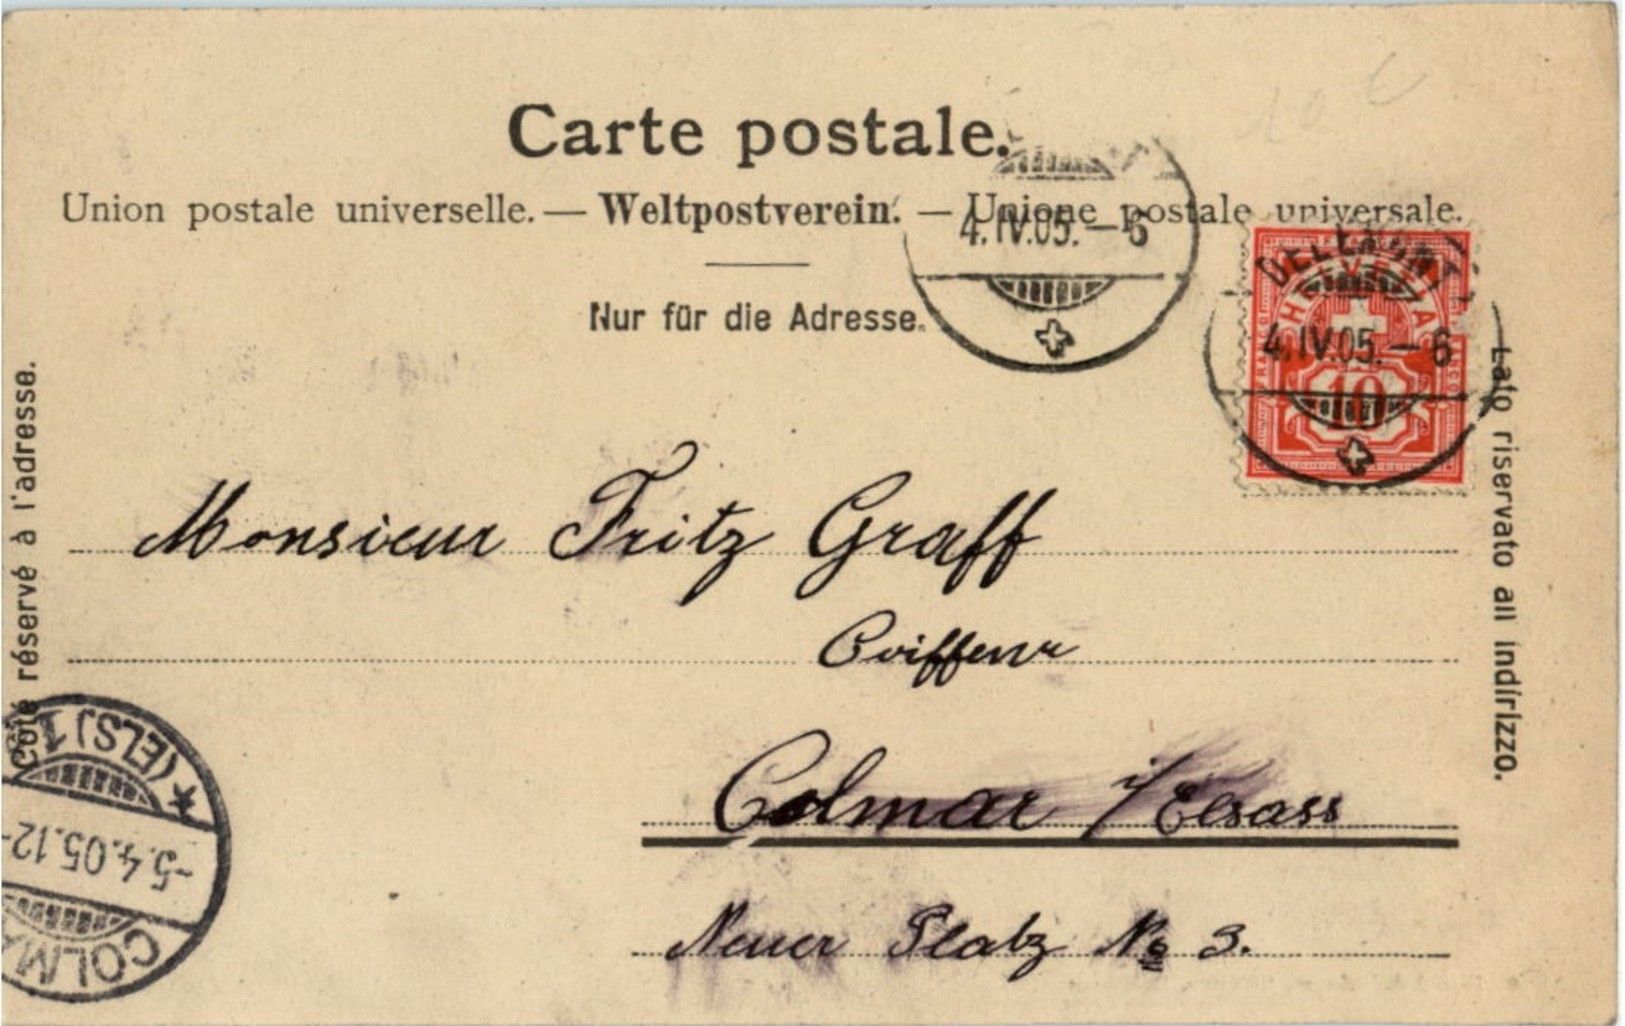 Carte postale.
Union postale universelle. — Weltpostverein. — Unione postale universale.
4.IV.05.—6
Nur für die Adresse.
HELVETIA
4.IV.05.—6
10
Côté réservé à l'adresse.
Lato riservato all indirizzo.
Monsieur Fritz Graff
Coiffeur
Colmar i/Elsass
Neuer Platz No 3.
COLMA
-5.4.05.12-
★ (ELS) 1
10 €